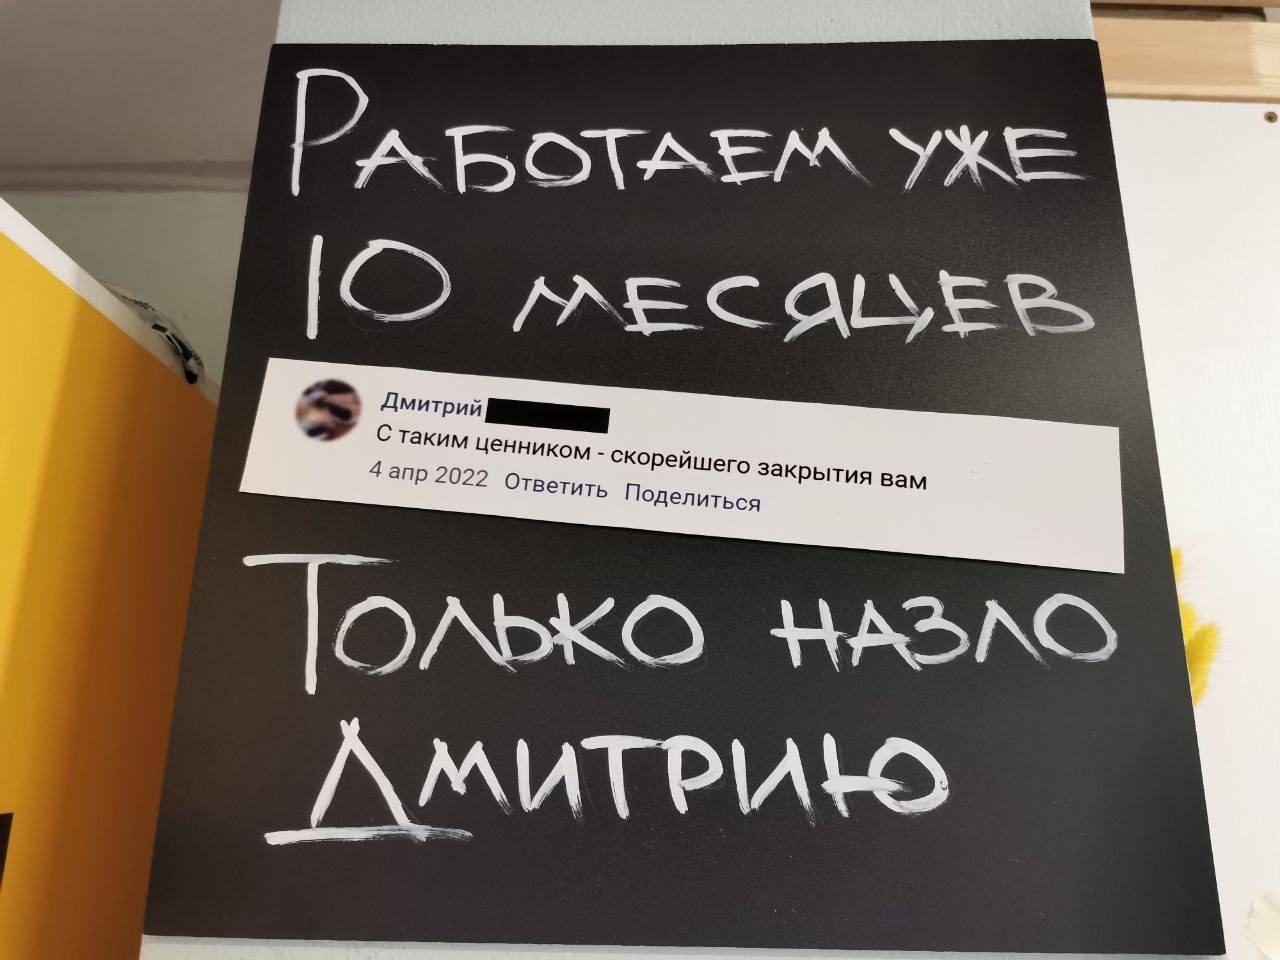 Работаем уже
10 месяцев
Дмитрий
С таким ценником - скорейшего закрытия вам
4 апр 2022 Ответить Поделиться
Только назло
Дмитрию